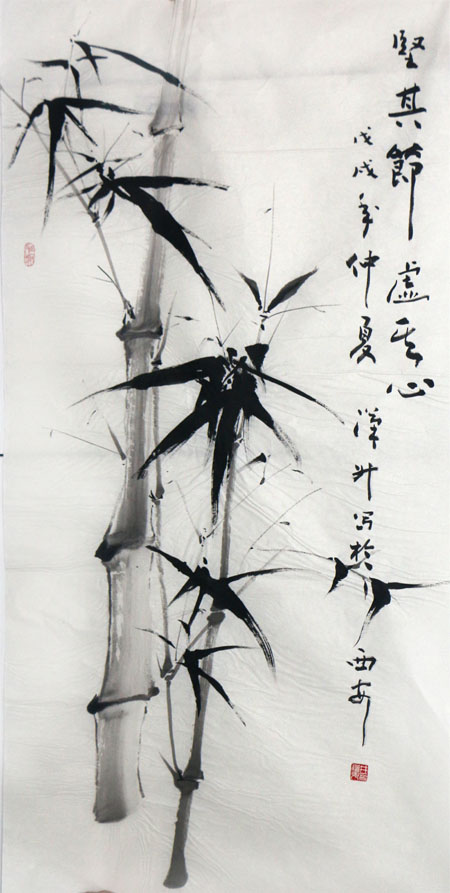 堅其節虛其心
戊戌年仲夏 漢升写於西安